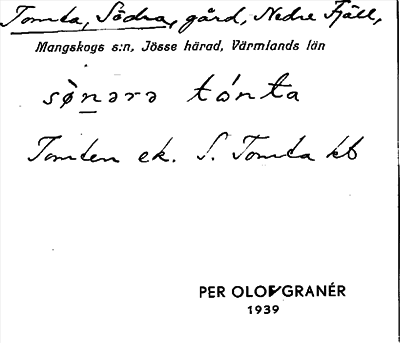 Tomta, Södra, gård, Nedre Fjäll,
Mangskogs s:n, Jösse härad, Värmlands län
sø̀nərə tónta
Tomten ek. S. Tomta kb
PER OLOF GRANÉR
1939